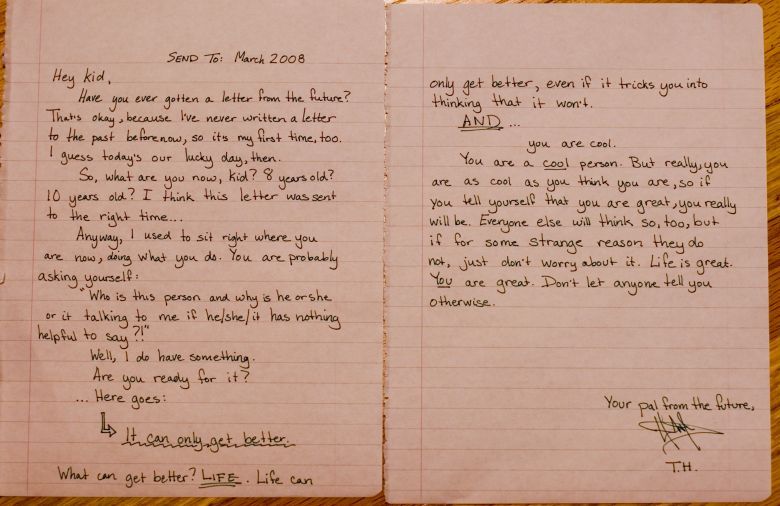 SEND TO: March 2008
Hey kid,
Have you ever gotten a letter from the future?
That's okay, because I've never written a letter
to the past before now, so its my first time, too.
I guess today's our lucky day, then.
So, what are you now, kid? 8 years old?
10 years old? I think this letter was sent
to the right time...
Anyway, I used to sit right where you
are now, doing what you do. You are probably
asking yourself:
"Who is this person and why is he or she
or it talking to me if he/she/it has nothing
helpful to say?!"
Well, I do have something.
Are you ready for it?
... Here goes:
It can only get better.
What can get better? LIFE. Life can
only get better, even if it tricks you into
thinking that it won't.
AND ...
you are cool.
You are a cool person. But really, you
are as cool as you think you are, so if
you tell yourself that you are great, you really
will be. Everyone else will think so, too, but
if for some strange reason they do
not, just don't worry about it. Life is great.
You are great. Don't let anyone tell you
otherwise.
Your pal from the future,
T.H.